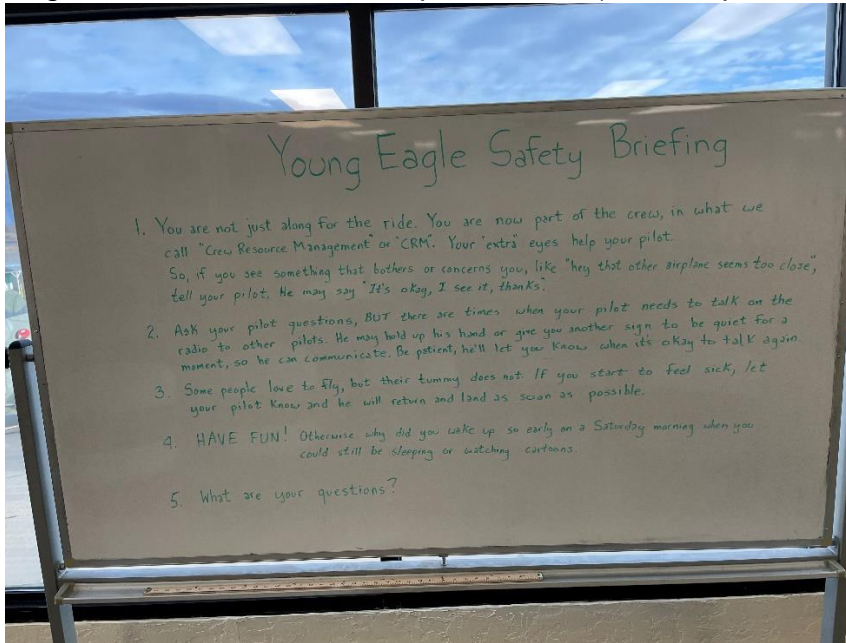 Young Eagle Safety Briefing
1. You are not just along for the ride. You are now part of the crew, in what we
call "Crew Resource Management" or "CRM". Your "extra" eyes help your pilot.
So, if you see something that bothers or concerns you, like "hey that other airplane seems too close",
tell your pilot. He may say "It's okay, I see it, thanks".
2. Ask your pilot questions, BUT there are times when your pilot needs to talk on the
radio to other pilots. He may hold up his hand or give you another sign to be quiet for a
moment, so he can communicate. Be patient, he'll let you know when it's okay to talk again.
3. Some people love to fly, but their tummy does not. If you start to feel sick, let
your pilot know and he will return and land as soon as possible.
4. HAVE FUN! Otherwise why did you wake up so early on a Saturday morning when you
could still be sleeping or watching cartoons.
5. What are your questions?